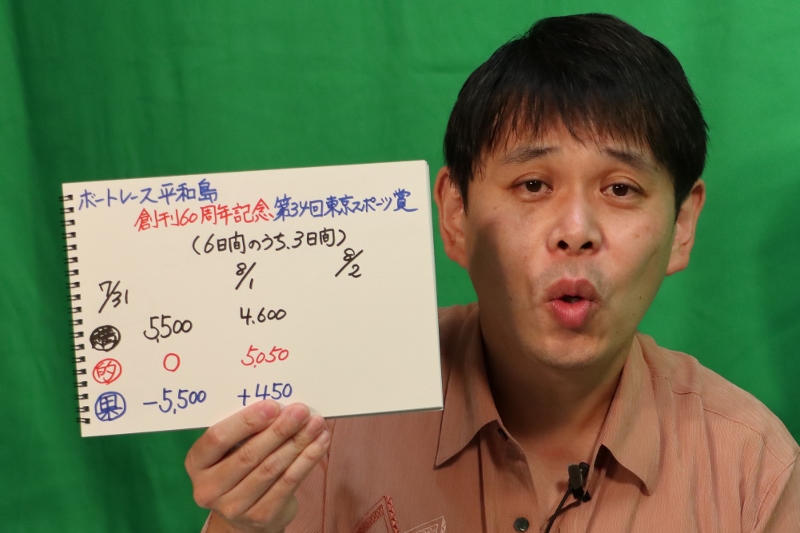 ボートレース平和島
創刊60周年記念、第34回東京スポーツ賞
(6日間のうち、3日間)
7/31 8/1 8/2
5,500 4,600
的 0 5,050
果 -5,500 +450